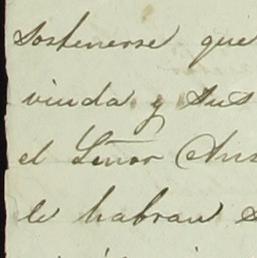 sostenerse que
viuda y sus
el Señor Ans
le habran s